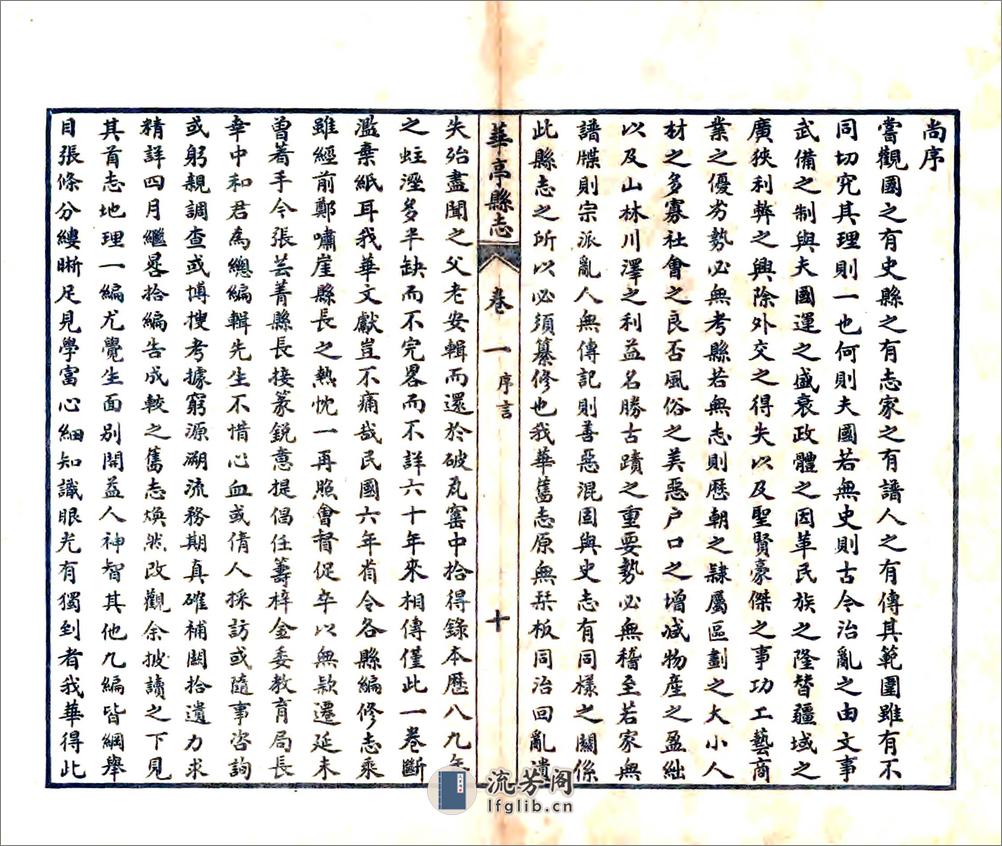 尚序
嘗觀國之有史縣之有志家之有譜人之有傳其範圍雖有不
同切究其理則一也何則夫國若無史則古今治亂之由文事
武備之制與夫國運之盛衰政體之因革民族之隆替疆域之
廣狹利弊之興除外交之得失以及聖賢豪傑之事功工藝商
業之優劣勢必無考縣若無志則歷朝之隸屬區劃之大小人
材之多寡社會之良否風俗之美惡户口之增减物產之盈絀
以及山林川澤之利益名勝古蹟之重要勢必無稽至若家無
譜牒則宗派亂人無傳記則善惡混固與史志有同樣之關係
此縣志之所以必須纂修也我華舊志原無栞板同治回亂潰
華亭縣志
卷一
序言
十
失殆盡聞之父老安輯而還於破瓦窰中拾得錄本歷八九年
之蛀溼多半缺而不完畧而不詳六十年來相傳僅此一卷斷
濫棄紙耳我華文獻豈不痛哉民國六年省令各縣編修志乘
雖經前鄭嘯崖縣長之熱忱一再照會督促卒以無款遷延未
曽著手今張芸菁縣長接篆銳意提倡任籌梓金委教育局長
幸中和君為總編輯先生不惜心血或倩人採訪或隨事咨詢
或躬親調查或博搜考據窮源溯流務期真確補闕拾遺力求
精詳四月繼晷拾編告成較之舊志煥然改觀余披讀之下見
其首志地理一編尤覺生面別開益人神智其他九編皆綱舉
目張條分縷晰足見學富心細知識眼光有獨到者我華得此
流芳阁
lfglib.cn